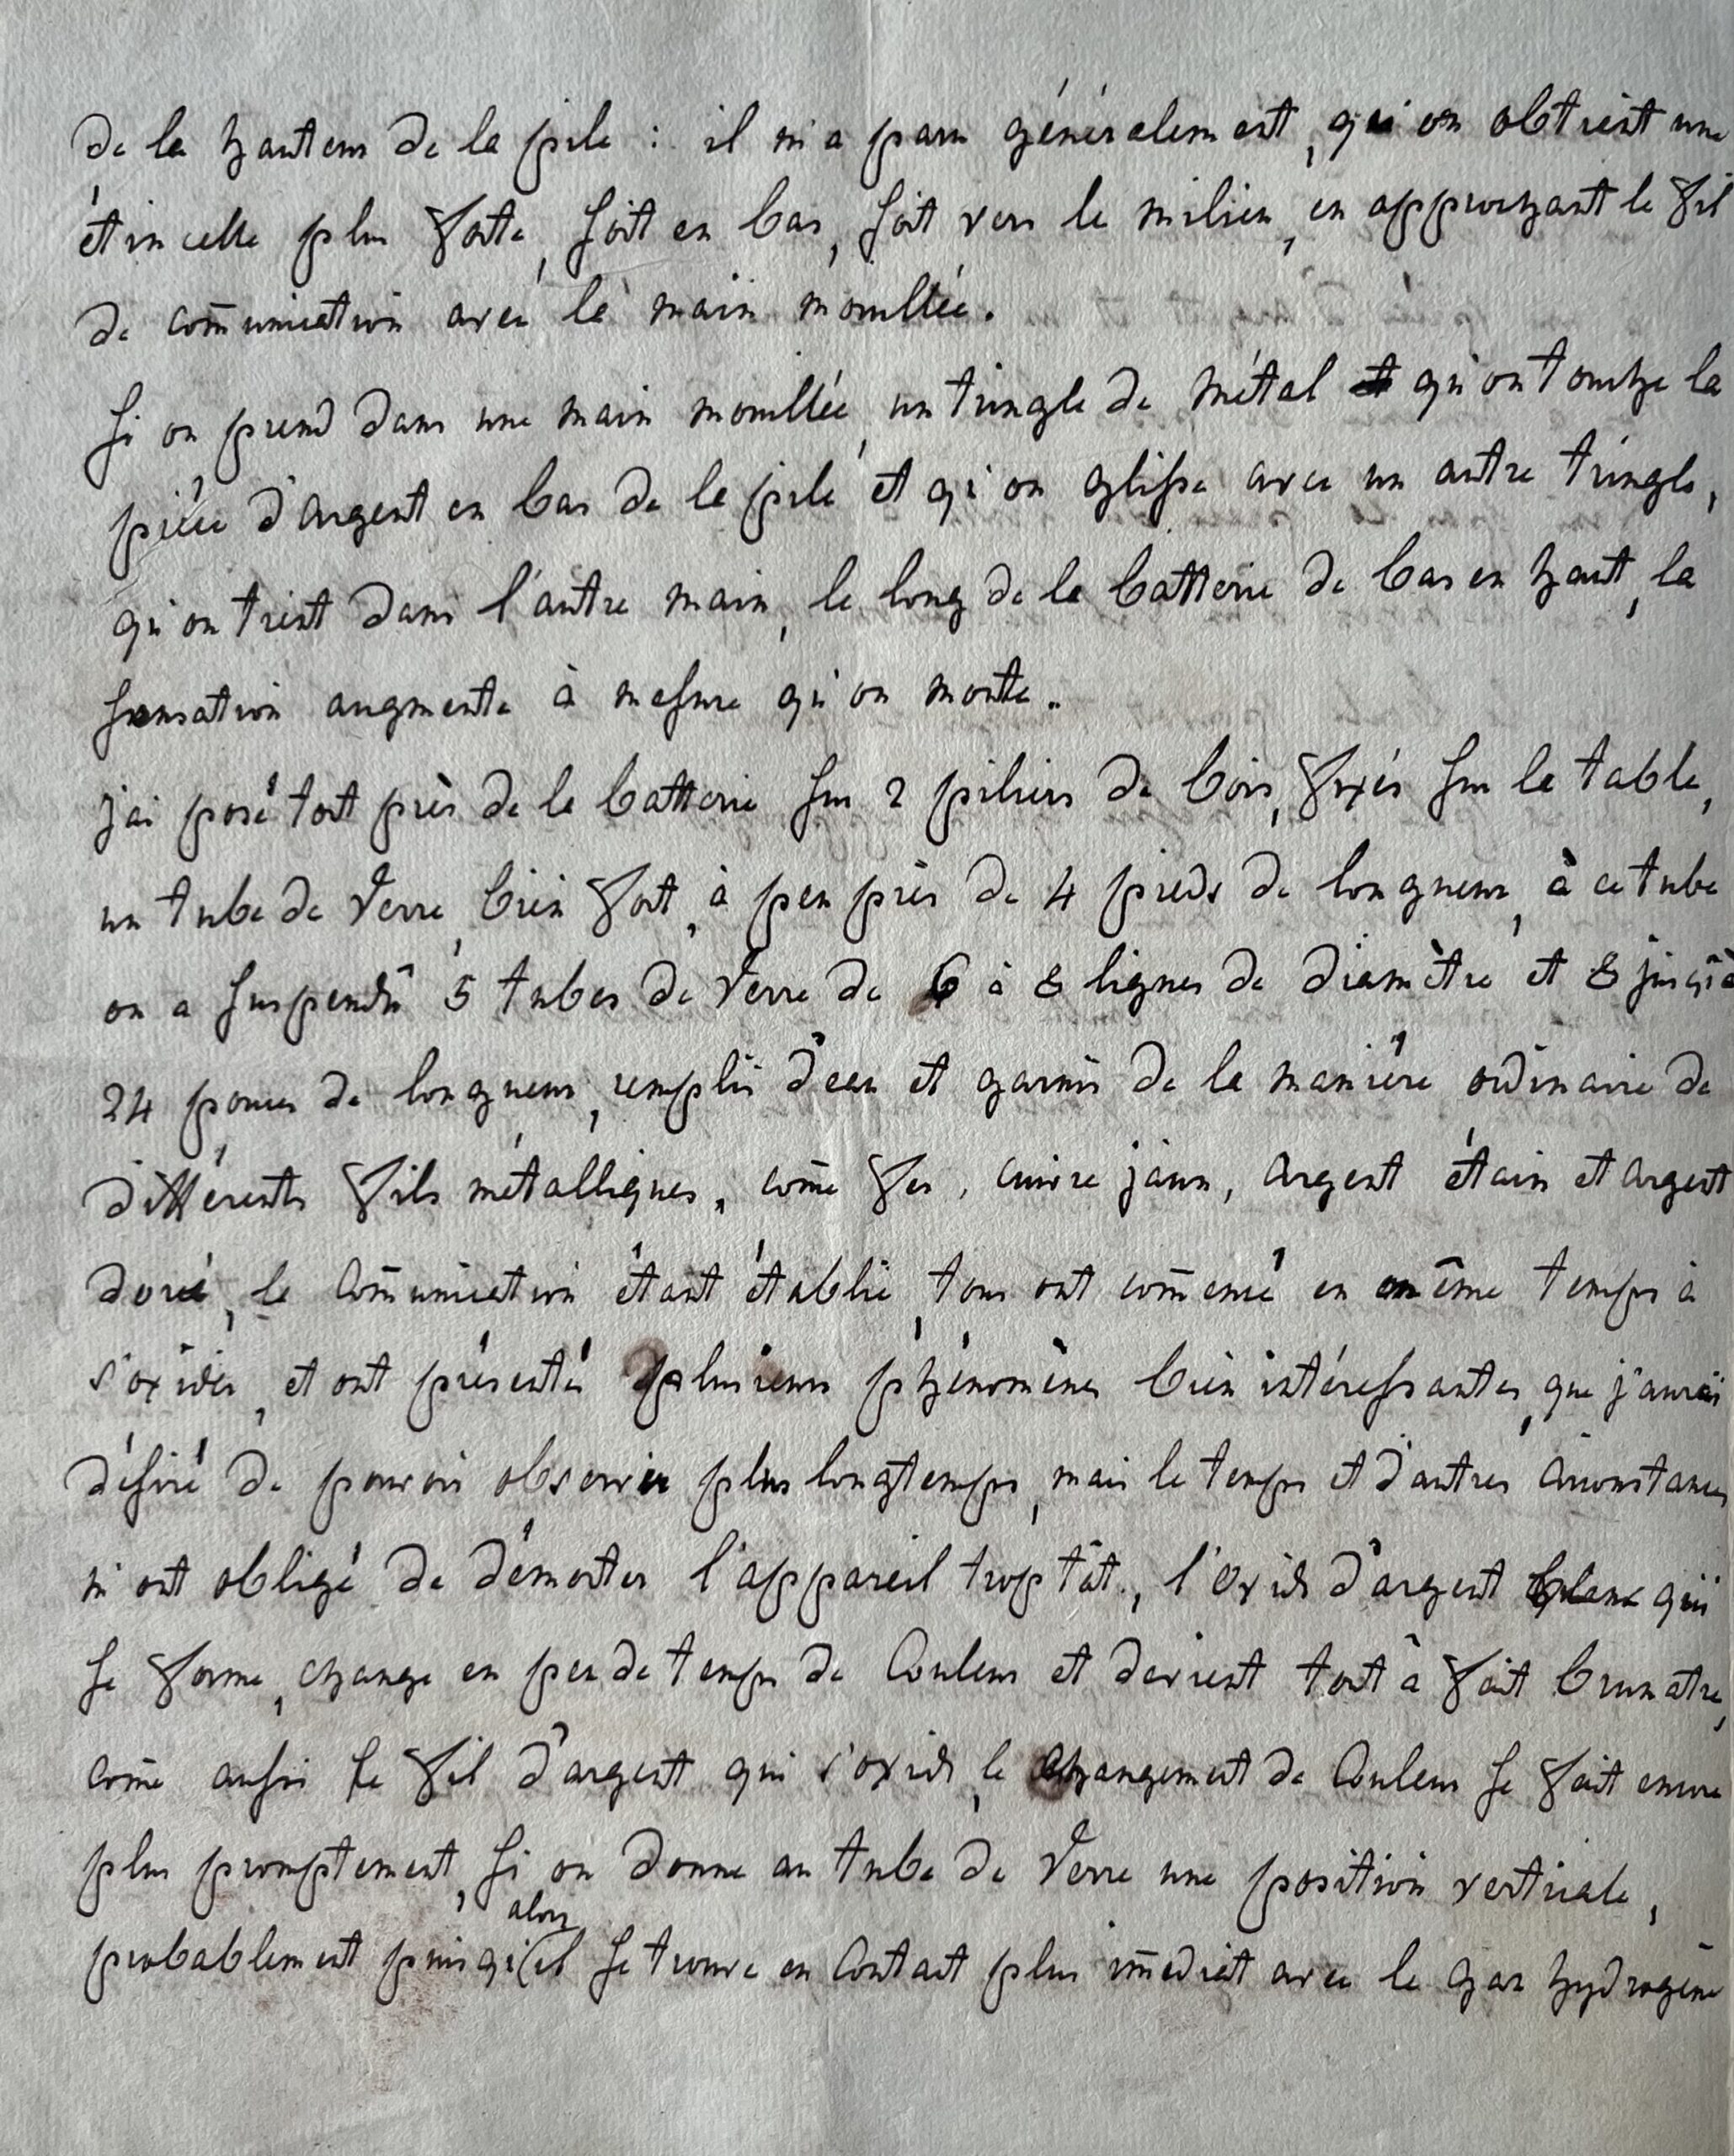 de la hauteur de la pile : il m'a paru généralement, qu'on obtient une
étincelle plus forte, soit en bas, soit vers le milieu, en approchant le fil
de com̄unication avec la main mouillée.
Si on prend dans une main mouillée, un tringle de métal qu'on touche la
pièce d'argent en bas de la pile et qu'on glisse avec un autre tringle,
qu'on tient dans l'autre main, le long de la batterie de bas en haut, la
sensation augmente à mesure qu'on monte.
j'ai posé tout près de la batterie sur 2 piliers de bois, fixés sur la table,
un tube de verre, bien fort, à peu près de 4 pieds de longueur, à ce tube
on a suspendû 5 tubes de verre de 6 à 8 lignes de diamètre et 8 jusqu'à
24 pouces de longueur, remplis d'eau et garnis de la manière ordinaire de
différents fils métalliques, com̄e fer, cuivre jaun, argent étain et argent
doré, la com̄unication étant établie, tous ont com̄encé en même temps à
s'oxider, et ont présenté plusieurs phénomènes bien intéressantes, que j'aurai
désiré de pouvoir observer plus longtemps, mais le temps et d'autres circonstances
m'ont obligé de démonter l'appareil trop tôt, l'oxide d'argent blanc qui
se forme, change en peu de temps de couleur et devient tout à fait brunatre,
com̄e aussi le fil d'argent qui s'oxide, le changement de couleur se fait encore
plus promptement, si on donne au tube de verre une position verticale,
alors
probablement puisqu'il se trouve en contact plus im̄ediat avec le gaz hydrogène